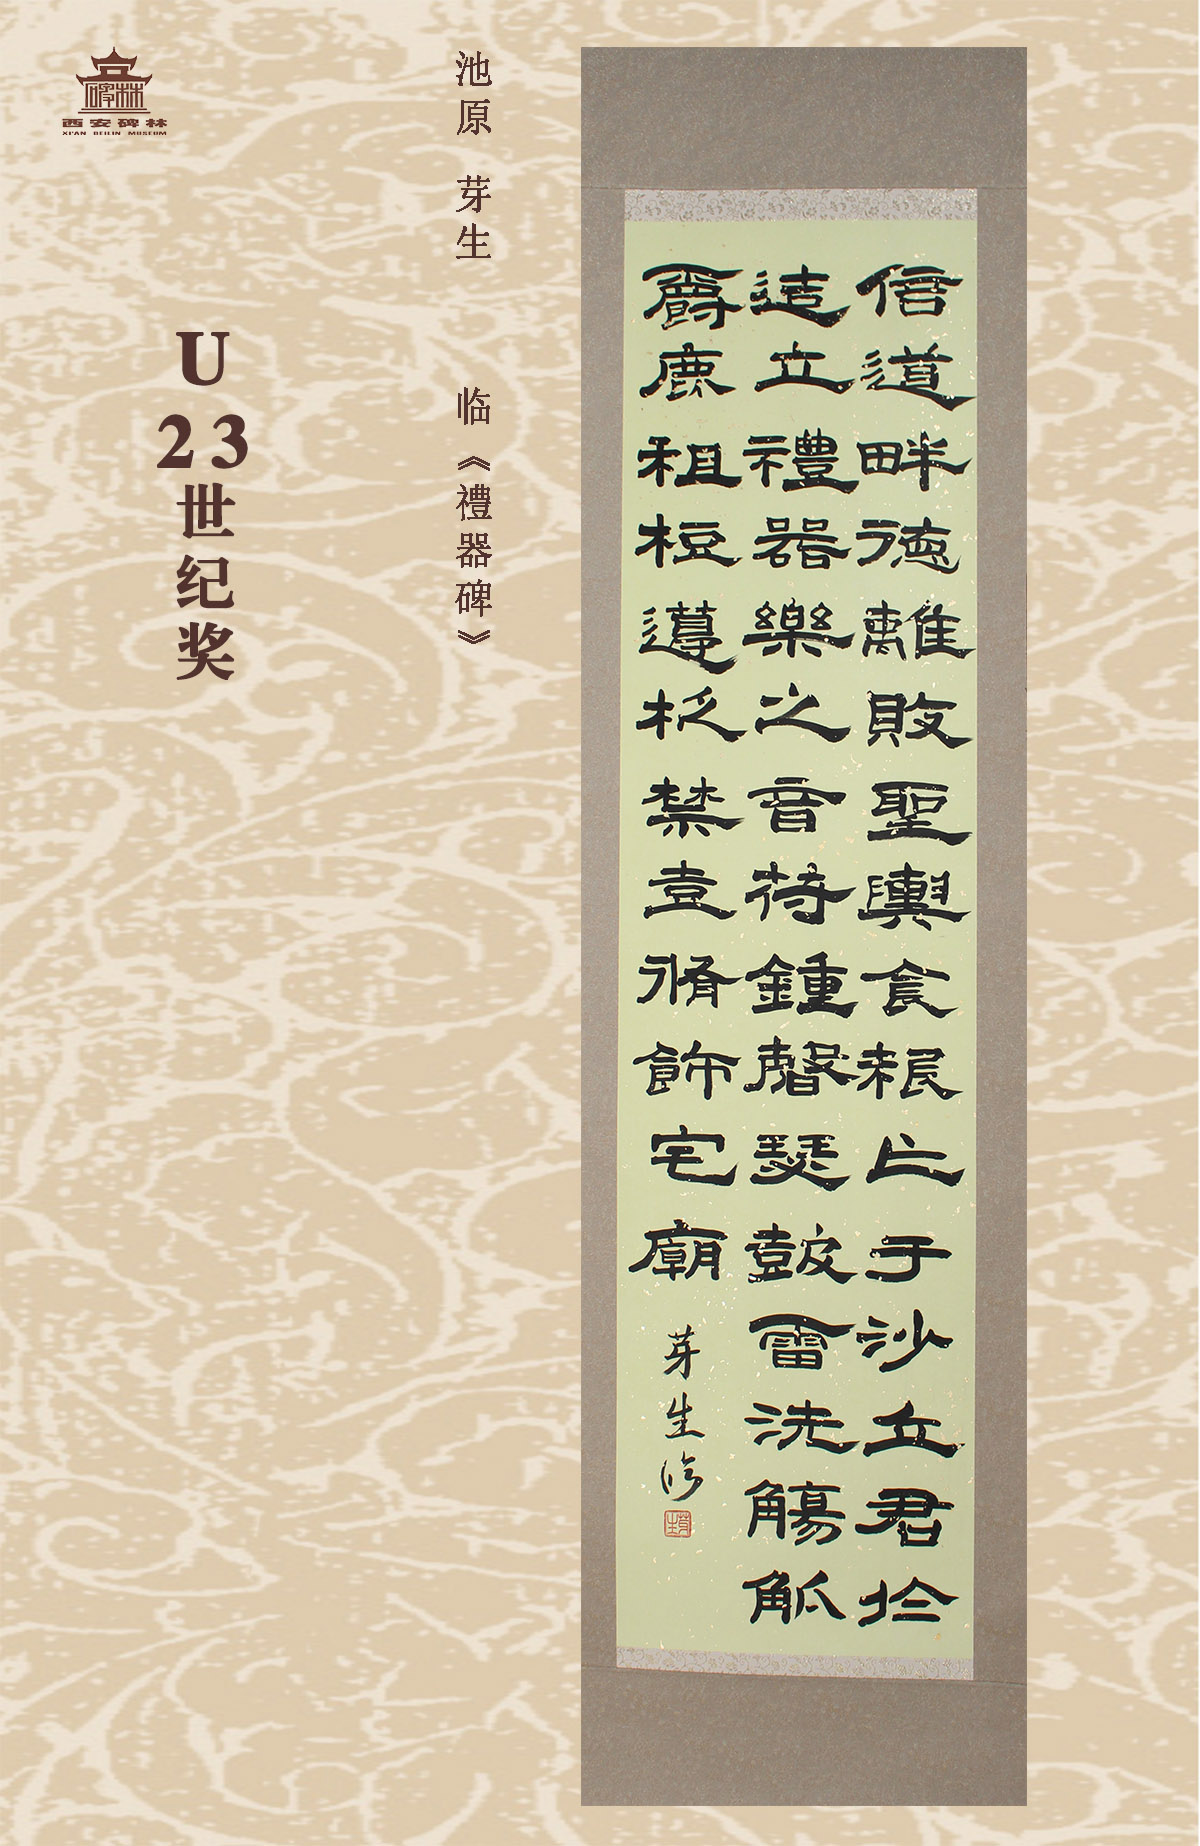 西安碑林
XI'AN BEILIN MUSEUM
U23世纪奖
池原 芽生 临《禮器碑》
倍道畔德離敗聖輿食粮亡于沙丘君於
造立禮器樂之音苻鍾磬瑟鼓雷洗觴觚
爵鹿柤梪籩柉禁壹脩飾宅廟
芽生临
芽生